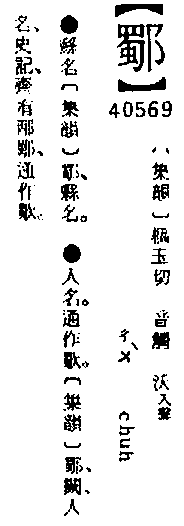 【𨞕】
40569
〔集韻〕樞玉切 音觸 沃入聲
ㄔㄨˋ chuh
●縣名〔集韻〕𨞕、縣名。●人名。通作歜。〔集韻〕𨞕、闕、人
名、史記、齊有邴𨞕、通作歜。